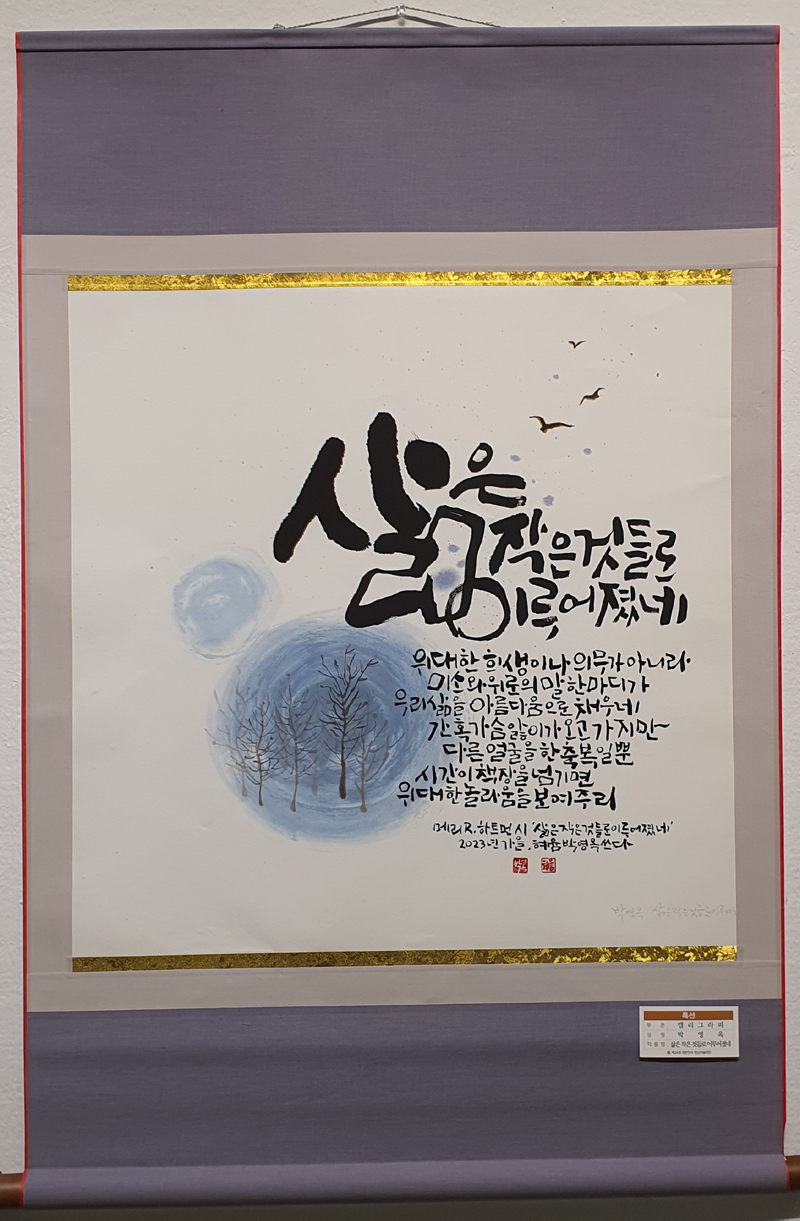 삶은
작은것들로
이루어졌네
위대한 희생이나 의무가 아니라
미소와 위로의 말 한마디가
우리 삶을 아름다움으로 채우네
간혹 가슴앓이가 오고 가지만
다른 얼굴을 한 축복일 뿐
시간이 책장을 넘기면
위대한 놀라움을 보여주리
메리 R. 하트먼 시 '삶은 작은것들로 이루어졌네'
2023년 가을, 혜윰 박영옥 쓰다
박영옥 삶은작은것들로이루어
특선
부 문 캘리그라피
성 명 박 영 옥
작품명 삶은 작은 것들로 이루어졌네